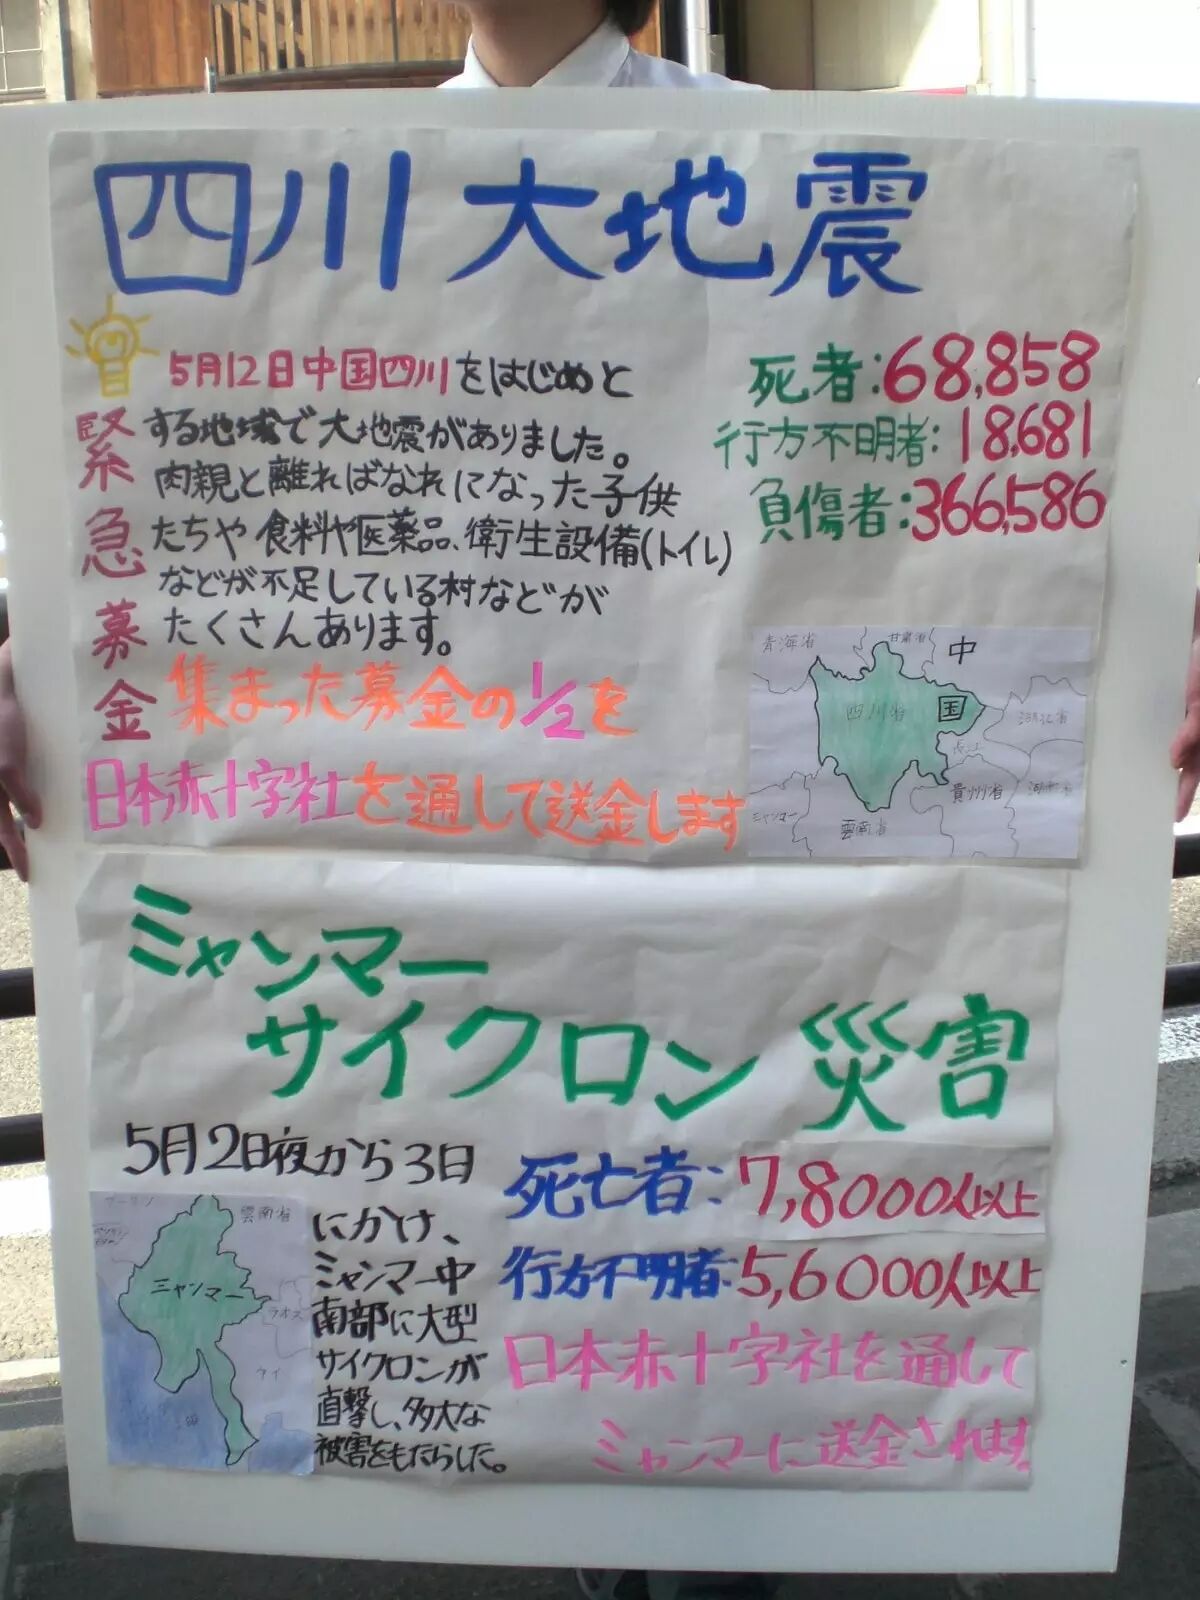 四川大地震
緊急募金
5月12日中国四川をはじめと
する地域で大地震がありました。
肉親と離ればなれになった子供
たちや食料や医薬品、衛生設備(トイレ)
などが不足している村などが
たくさんあります。
集まった募金の1/2を
日本赤十字社を通して送金します
死者:68,858
行方不明者:18,681
負傷者:366,586
青海省
甘粛省
中
国
四川省
長江
貴州省
雲南省
ミャンマー
ミャンマー
サイクロン災害
5月2日夜から3日
にかけ、
ミャンマー中
南部に大型
サイクロンが
直撃し、多大な
被害をもたらした。
雲南省
ミャンマー
ラオス
タイ
海
死亡者:7,8000人以上
行方不明者:5,6000人以上
日本赤十字社を通して
ミャンマーに送金されます。